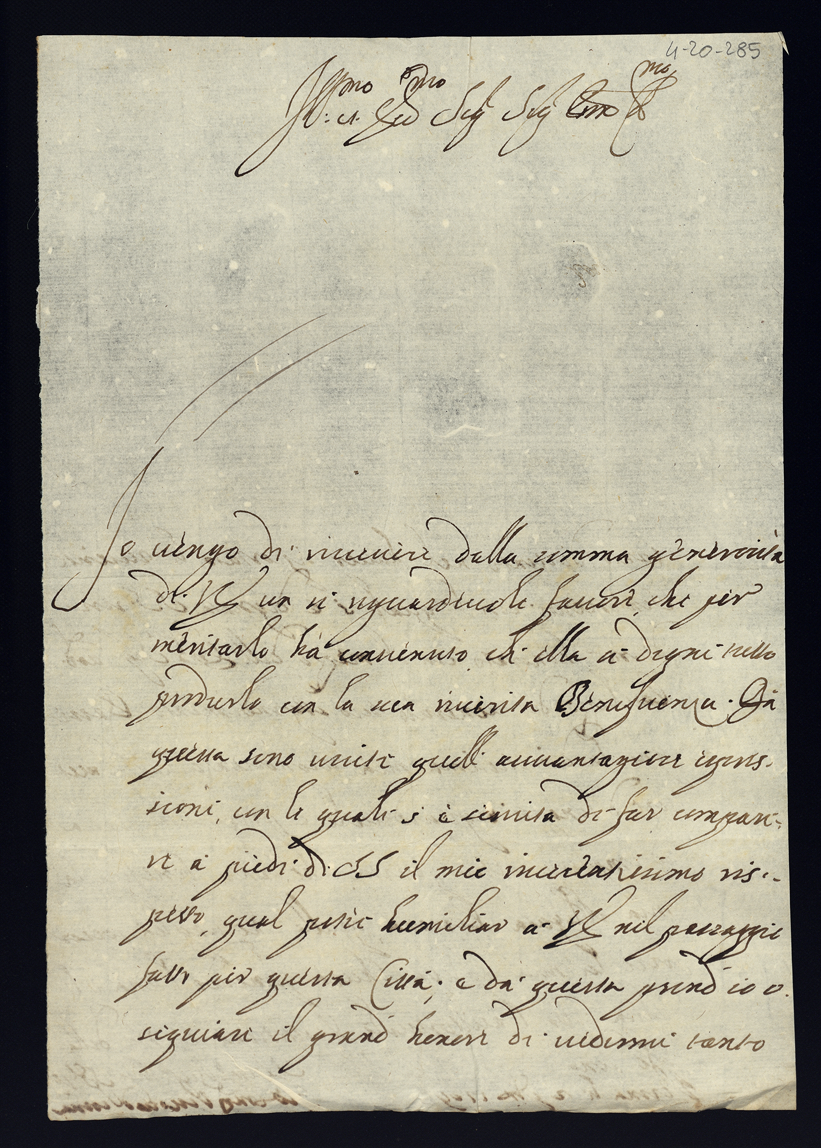 4-20-285
Ill:mo et Ecc:mo Sig: Sig: P:rone Col:mo
Io vengo di ricevere dalla somma generosità
di VE un sì riguardevole favore, che per
meritarlo hà convenuto, ch'ella si degni tutto
produrlo con la sua riverita Beneficenza. Da
questa sono uscite quelle avvantaggiose espres-
sioni, con le quali s'è servita di far compari-
re a piedi di SS il mio riverentissimo ris-
petto, qual potei humiliar a VE nel passaggio
fatto per questa Città; e da questa prend'io o
seguiare il grand'honore di vedermi tanto